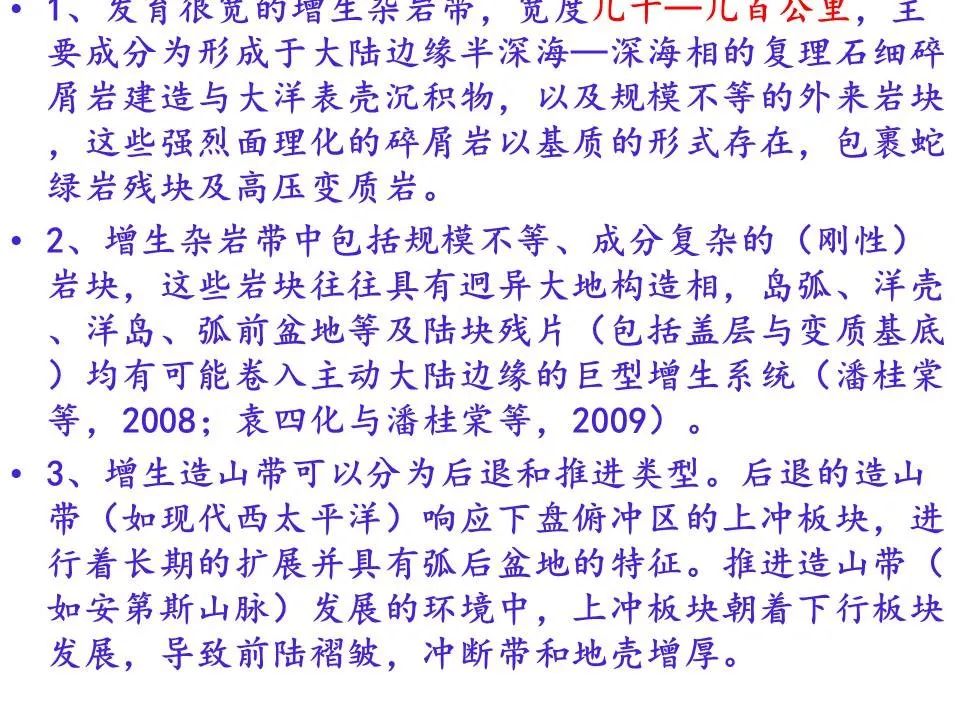 • 1、发育很宽的增生杂岩带，宽度几十—几百公里，主
要成分为形成于大陆边缘半深海—深海相的复理石细碎
屑岩建造与大洋表壳沉积物，以及规模不等的外来岩块
，这些强烈面理化的碎屑岩以基质的形式存在，包裹蛇
绿岩残块及高压变质岩。
• 2、增生杂岩带中包括规模不等、成分复杂的（刚性）
岩块，这些岩块往往具有迥异大地构造相，岛弧、洋壳
、洋岛、弧前盆地等及陆块残片（包括盖层与变质基底
）均有可能卷入主动大陆边缘的巨型增生系统（潘桂棠
等，2008；袁四化与潘桂棠等，2009）。
• 3、增生造山带可以分为后退和推进类型。后退的造山
带（如现代西太平洋）响应下盘俯冲区的上冲板块，进
行着长期的扩展并具有弧后盆地的特征。推进造山带（
如安第斯山脉）发展的环境中，上冲板块朝着下行板块
发展，导致前陆褶皱，冲断带和地壳增厚。